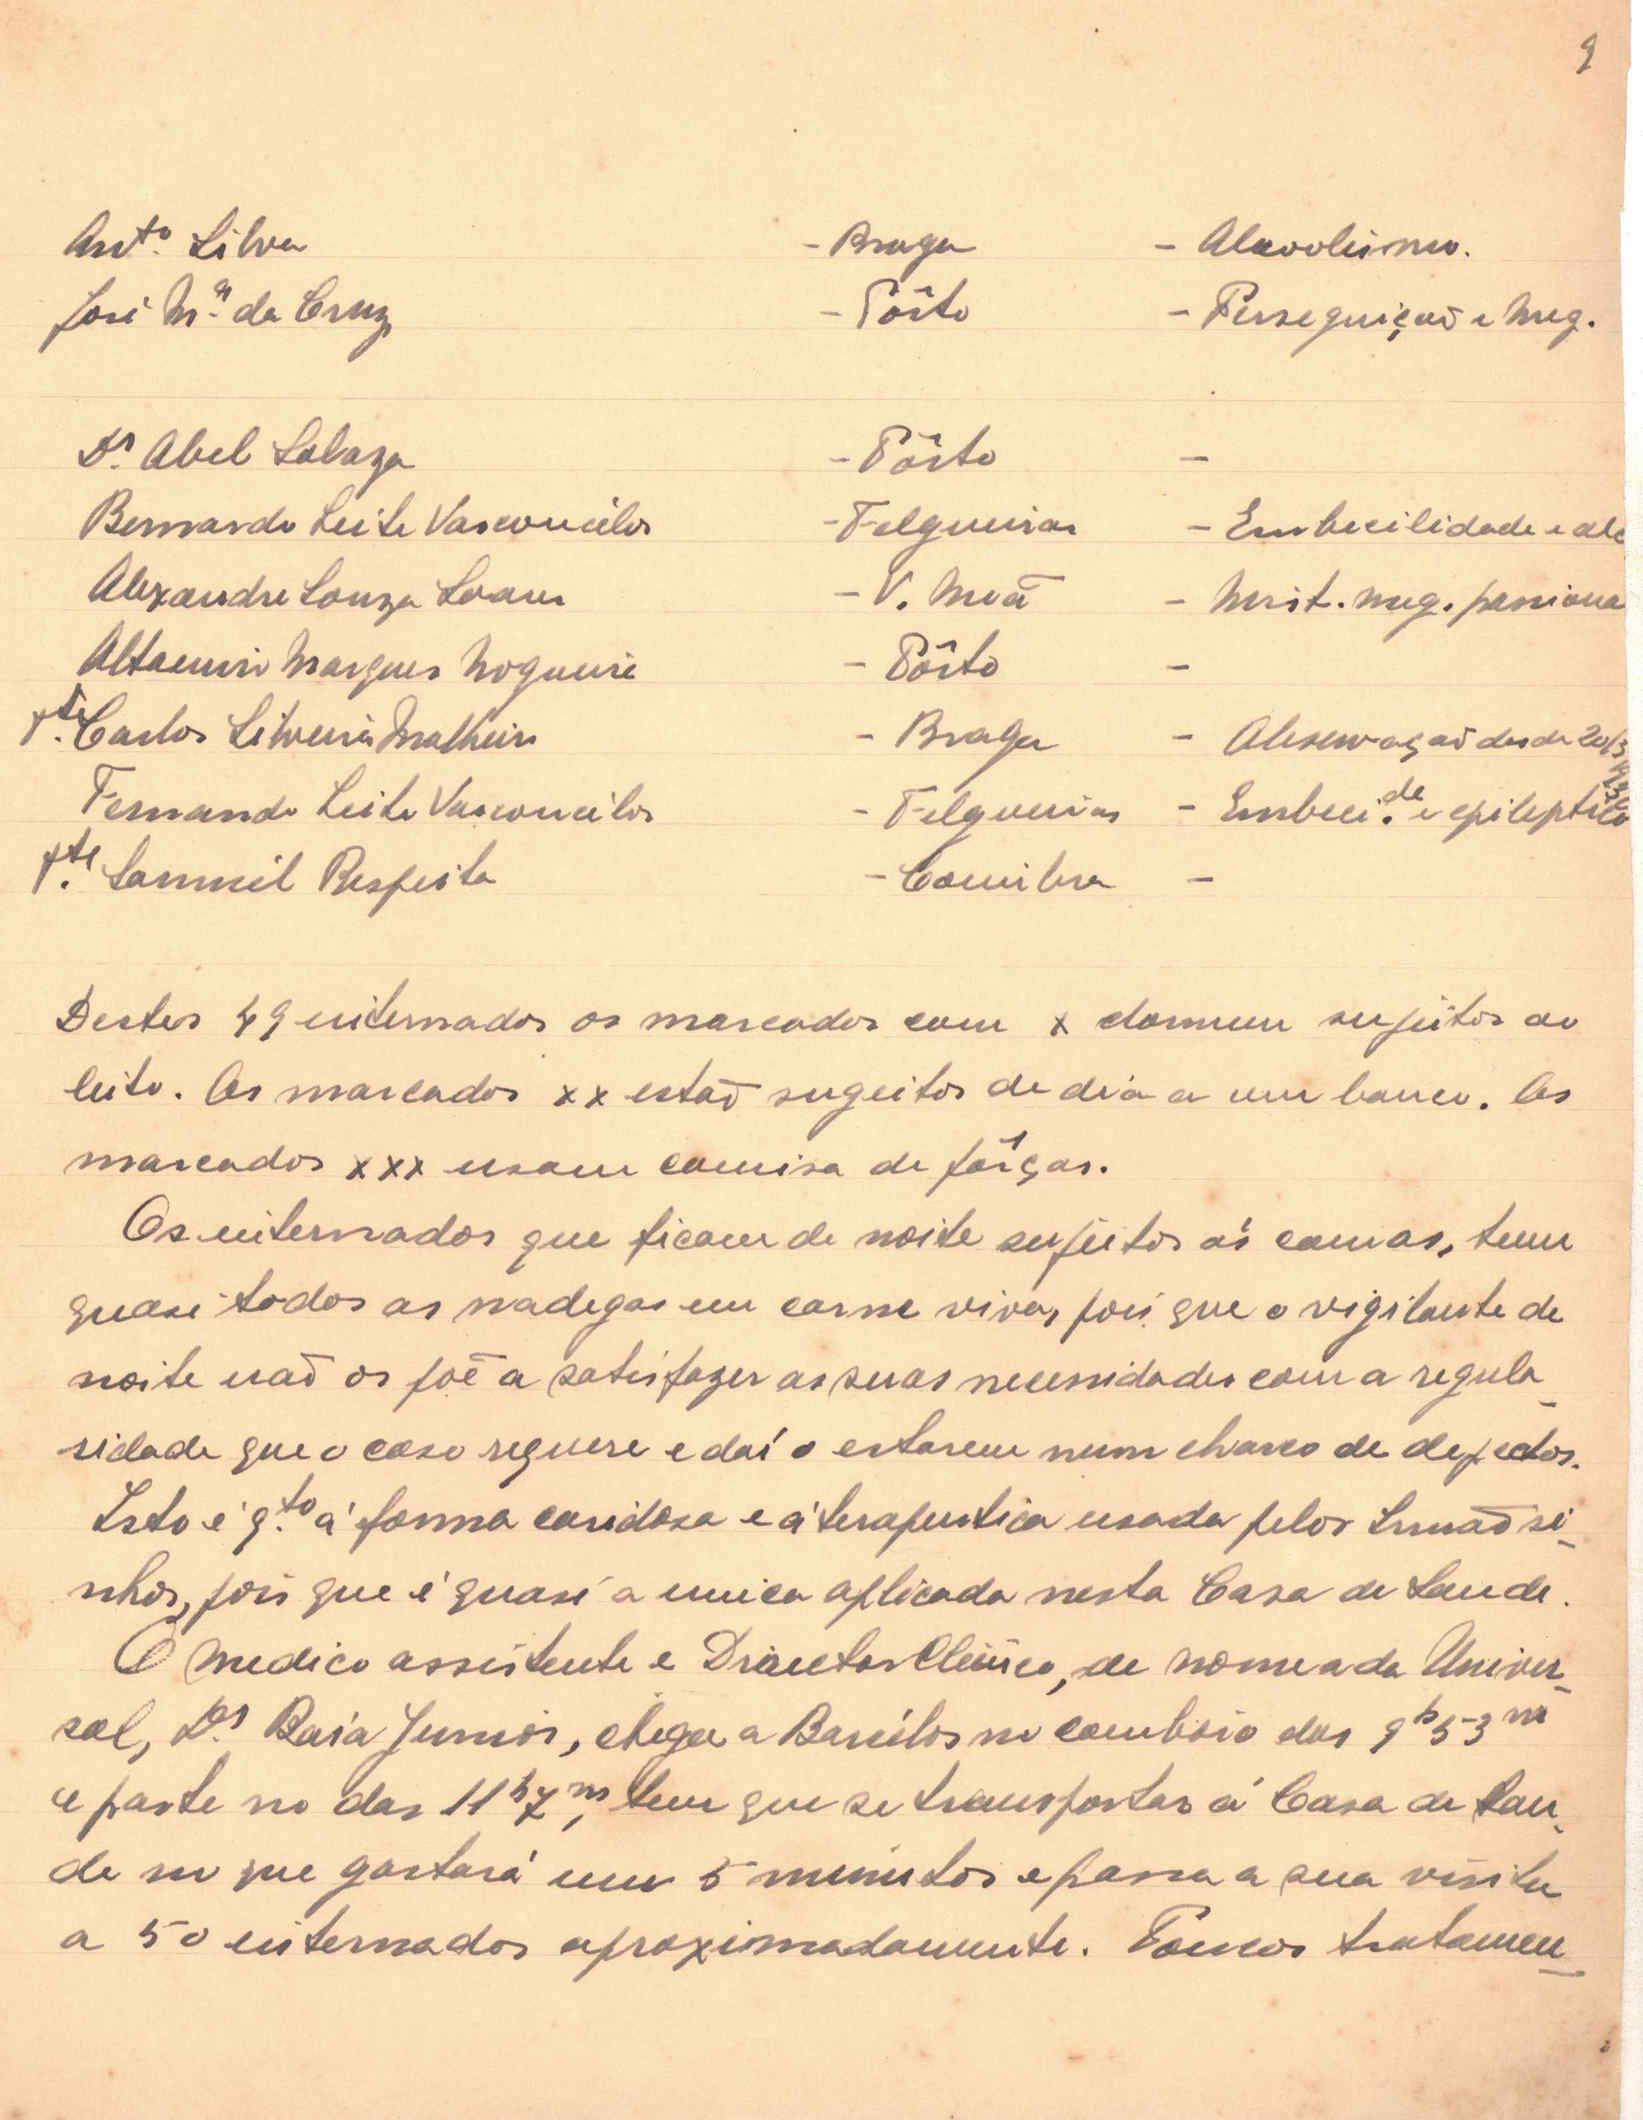 9
Antº. Silva - Braga - Alcoolismo.
José Mª. da Cruz - Pôrto - Perseguição e Meg.
Dr. Abel Salaza - Pôrto -
Bernardo Leite Vasconcélos - Felgueiras - Embecilidade e alc
Alexandre Souza Soares - V. Meã - Mist. meg. passiona
Altamiro Marques Nogueira - Pôrto -
Carlos Silveira Malheiro - Braga - Observação desde 20/3
Fernando Leite Vasconcélos - Felgueiras - Embeci.de e epileptico
Samuel Respeita - Coimbra -
Destes 49 internados os marcados com x dormem sujeitos ao
leito. Os marcados xx estão sugeitos de dia a um banco. Os
marcados xxx usam camisa de fôrças.
Os internados que ficam de noite sujeitos ás camas, teem
quasi todos as nadegas em carne viva, pois que o vigilante de
noite não os põe a satisfazer as suas necessidades com a regula_
ridade que o caso requere e daí o estarem num charco de dejectos.
Isto é q.to á forma caridosa e á terapeutica usada pelos Irmãosi_
nhos, pois que é quasi a unica aplicada nesta Casa de Saude.
O Medico assistente e Director Clinico, de nomeada Univer_
sal, Dr. Baía Junior, chega a Barcélos no comboio das 9h53m
e parte no das 11h7m, tem que se transportar á Casa de Sau_
de no que gastará uns 5 minutos e passa a sua visita
a 50 internados aproximadamente. Poucos tratamen_